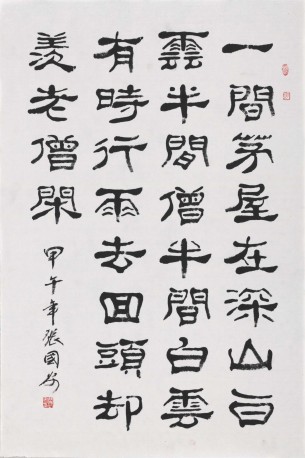 一間茅屋在深山白
雲半間僧半間白雲
有時行雨去回頭却
羨老僧閑
甲午年張國